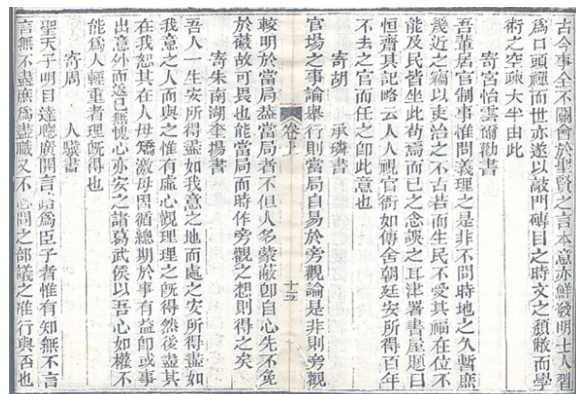 古今事全不關會於聖賢之言本意亦鮮發明士人習
爲口頭經而世亦遂以敲門磚目之時文之頹敝而學
術之空疎大半由此
寄宮怡雲爾勸書
吾輩居官制事惟問義理之是非不問時地之久暫庶
幾近之竊以吏治之不古若而生民不受其福在位不
能及民皆坐此苟焉而已之念誤之耳津署書屋題曰
恒齋其記略云人人視官衙如傳舍朝廷安所得百年
不去之官而任之卽此意也
寄胡 承璘書
官場之事論舉行則當局自易於旁觀論是非則旁觀
卷上
十五
較明於當局葢當局者不但人多蒙蔽卽自心先不免
於嶶故可畏也能當局而時作旁觀之想則得之矣
寄朱南湖奎揚書
吾人一生安所得盡如我意之地而處之安所得盡如
我意之人而與之惟有虛心觀理理之旣得然後盡其
在我恕其在人毋矯激毋因循總期於事有益卽或事
出意外而返已無愧心亦安之諸葛武侯以吾心如權不
能爲人輕重者理旣得也
寄周 人驥書
聖天子明目達聰廣開言路爲臣子者惟有知無不言
言無不盡庶爲盡職又不必問之部議之准行與否也